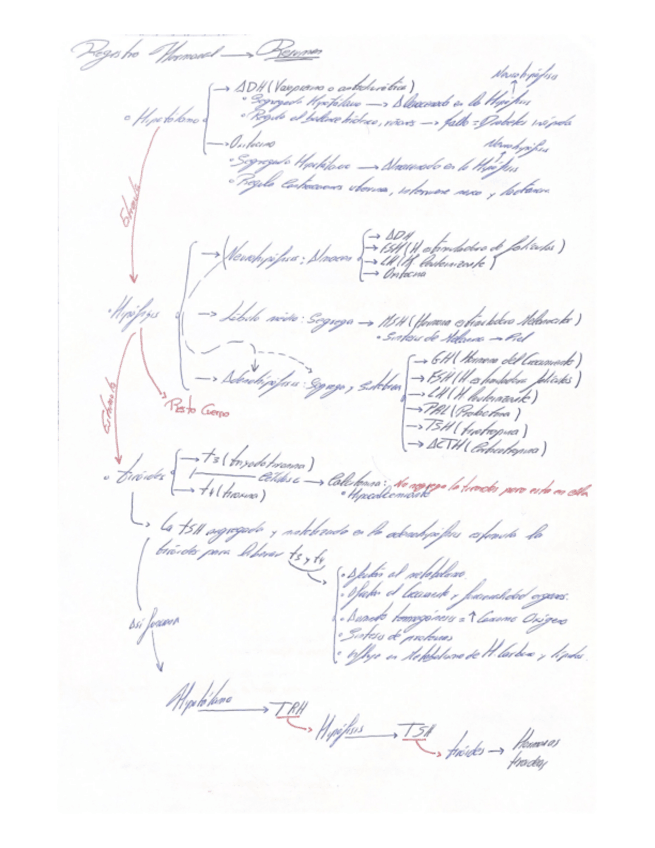 Registro Hormonal → Resumen
Neurohipófisis
→ ADH (Vasopresina o antidiurética)
• Segregada Hipotálamo → Almacenada en la Hipófisis
• Hipotálamo
• Regula el balance hídrico, → fallo = Diabetes insípida
Neurohipófisis
→ Oxitocina
• Segregada Hipotálamo → Almacenada en la Hipófisis
• Regula Contracciones uterinas, y lactancia
Estimula
→ Neurohipófisis: Almacena
→ ADH
→ FSH (H estimuladora de folículos)
→ LH (H luteinizante)
→ Oxitocina
• Hipófisis
→ Lóbulo medio: Segrega → MSH (Hormona estimuladora Melanocitos)
• Síntesis de Melanina → Piel
→ Adenohipófisis: Segrega y sintetiza
→ GH (Hormona del Crecimiento)
→ FSH (H estimuladora folículos)
→ LH (H luteinizante)
→ PRL (Prolactina)
→ TSH (tirotropina)
→ ACTH (Corticotropina)
Estimula
Resto Cuerpo
• tiroides
→ t3 (triyodotironina)
Células c → Calcitonina: No segrega la tiroides pero esta en ella
→ t4 (tiroxina)
• Hipocalcemiante
La TSH segregada y sintetizada en la adenohipófisis estimula la
tiroides para liberar t3 y t4
• Afectan al metabolismo.
• Afectan el Crecimiento y funcionalidad órganos.
• Aumento termogénesis = ↑ Consumo Oxígeno
• Síntesis de proteínas
• Influye en Metabolismo de H. Carbono y lípidos.
Así funciona
Hipotálamo → TRH
Hipófisis → TSH
tiroides → Hormonas
tiroideas